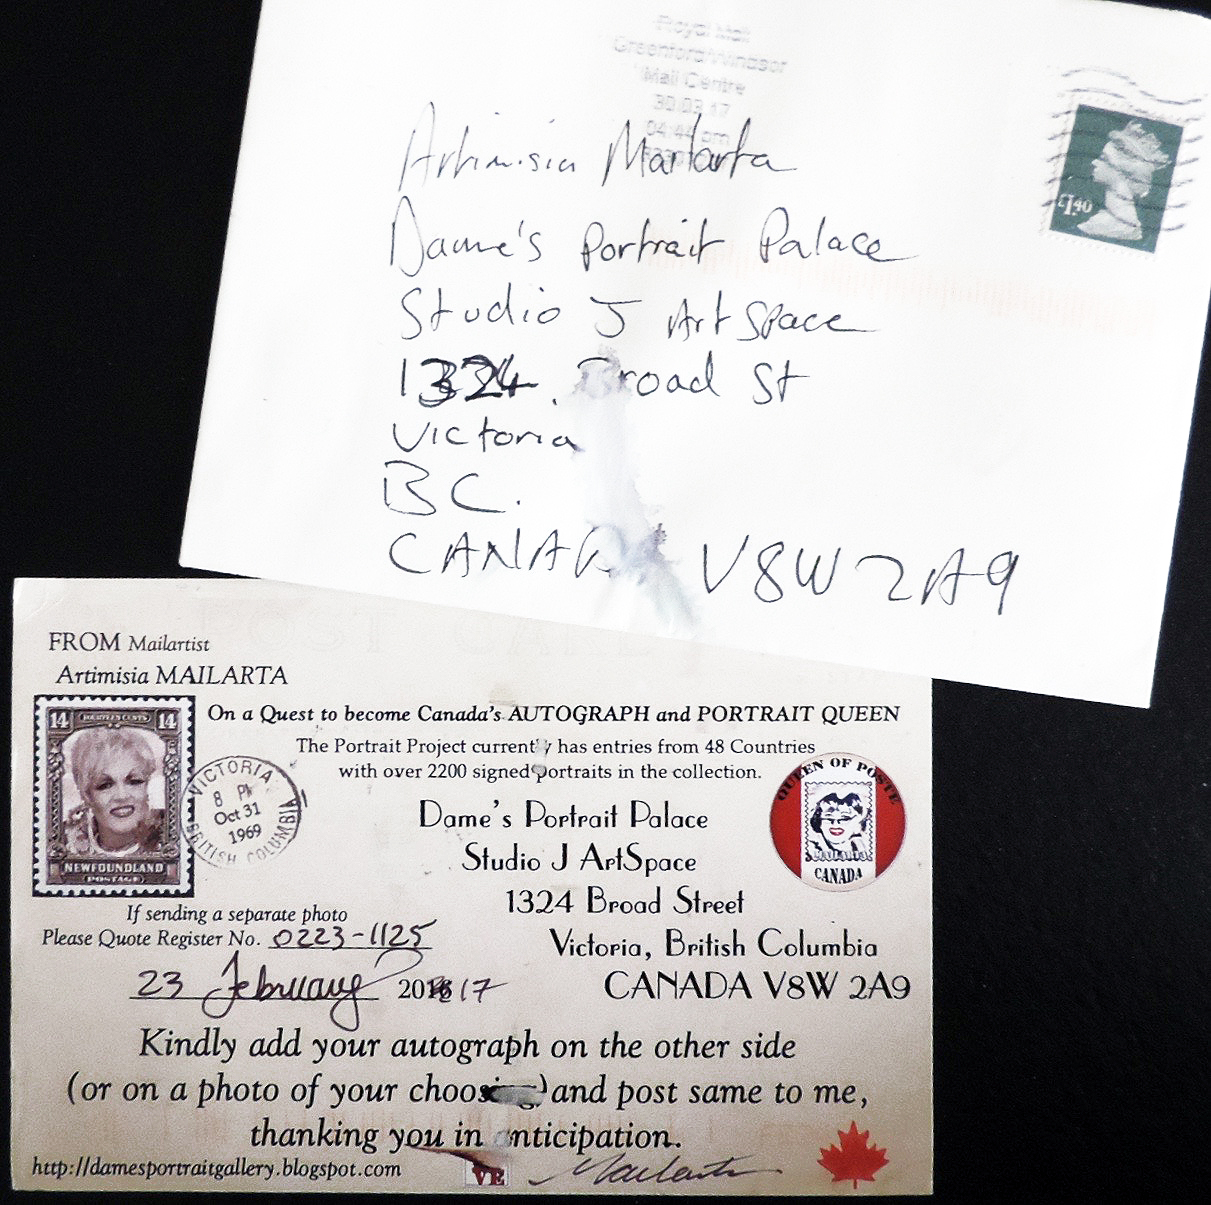 Royal Mail
Greenford/Windsor
Mail Centre
30.03.17
04:44 pm
£1.40
Artimisia Mailarta
Dame's Portrait Palace
Studio J Art Space
1324. Broad St
Victoria
BC.
CANADA V8W 2A9
FROM Mailartist
Artimisia MAILARTA
On a Quest to become Canada's AUTOGRAPH and PORTRAIT QUEEN
The Portrait Project currently has entries from 48 Countries
with over 2200 signed portraits in the collection.
14 FOURTEEN CENTS 14
NEWFOUNDLAND
POSTAGE
VICTORIA
8 PM
Oct 31
1969
BRITISH COLUMBIA
QUEEN OF POSTE
CANADA
Dame's Portrait Palace
Studio J ArtSpace
1324 Broad Street
Victoria, British Columbia
CANADA V8W 2A9
If sending a separate photo
Please Quote Register No. 0223-1125
23 February 2017
Kindly add your autograph on the other side
(or on a photo of your choosing) and post same to me,
thanking you in anticipation.
http://damesportraitgallery.blogspot.com
VE
Mailarta